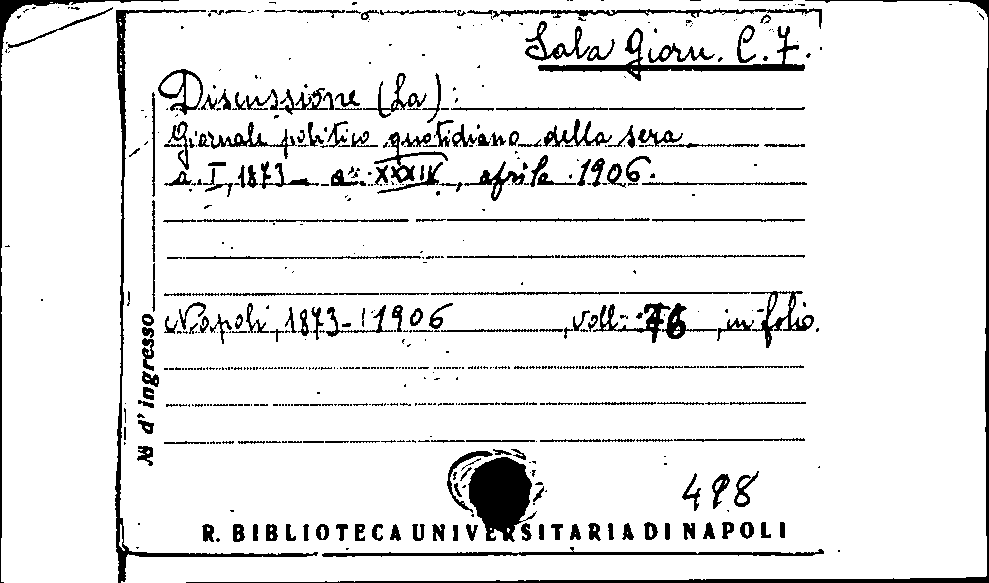 Sala Giorn. C. 7.
Discussione (La):
Giornale politico quotidiano della sera.
a. I, 1873 - a. XXXIV, aprile 1906.
Napoli, 1873-1906 , voll: 76 , in folio.
№ d'ingresso
498
R. BIBLIOTECA UNIVERSITARIA DI NAPOLI